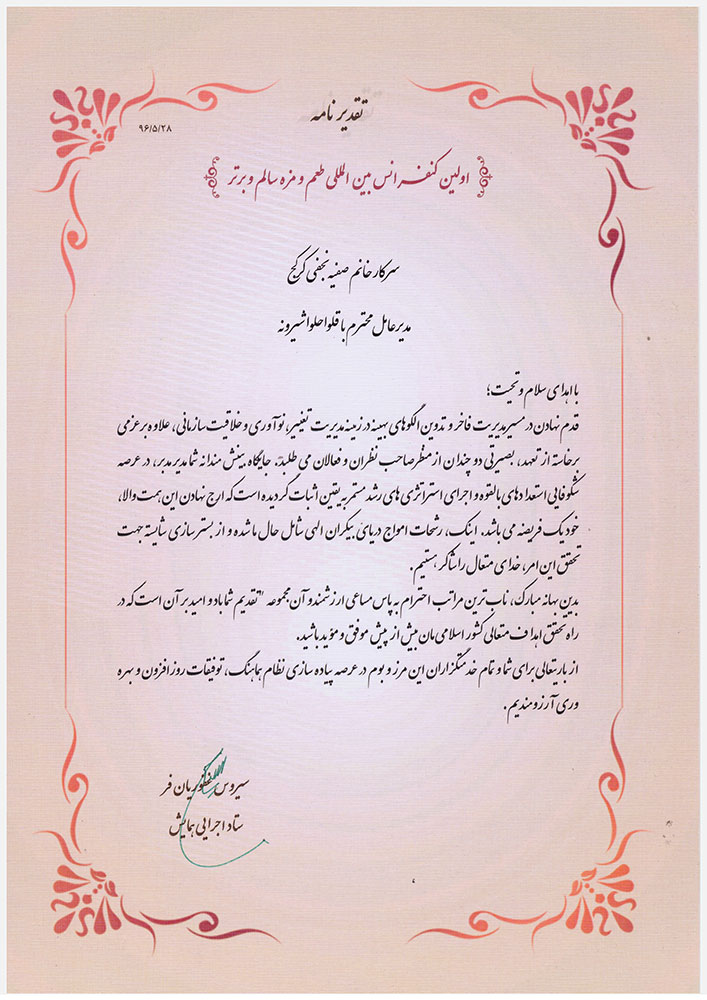 تقدیر نامه
۹۶/۵/۲۸
اولین کنفرانس بین المللی طعم و مزه سالم و برتر
سرکار خانم صفیه نجفی کرکج
مدیرعامل محترم باقلوا حلوا شیرونه
با اهدای سلام و تحیت؛
قدم نهادن در مسیر مدیریت فاخر و تدوین الگوهای بهینه در زمینه مدیریت تغییر، نوآوری و خلاقیت سازمانی، علاوه بر عزمی
برخاسته از تعهد، بصیرتی دو چندان از منظر صاحب نظران و فعالان می طلبد. جایگاه بینش مندانه شما مدیر مدبر، در عرصه
شکوفایی استعدادهای بالقوه و اجرای استراتژی های رشد مستمر به یقین اثبات گردیده است که ارج نهادن این همت والا،
خود یک فریضه می باشد. اینک، رشحات امواج دریای بیکران الهی شامل حال ما شده و از بسترسازی شایسته جهت
تحقق این امر، خدای متعال را شاکر هستیم.
بدین بهانه مبارک، ناب ترین مراتب احترام به پاس مساعی ارزشمند و آن مجموعه "تقدیم شما باد و امید بر آن است که در
راه تحقق اهداف متعالی کشور اسلامی مان بیش از پیش موفق و مؤید باشید.
از باریتعالی برای شما و تمام خدمتگزاران این مرز و بوم در عرصه پیاده سازی نظام هماهنگ، توفیقات روزافزون و بهره
وری آرزومندیم.
سیروس فر
ستاد اجرایی همایش